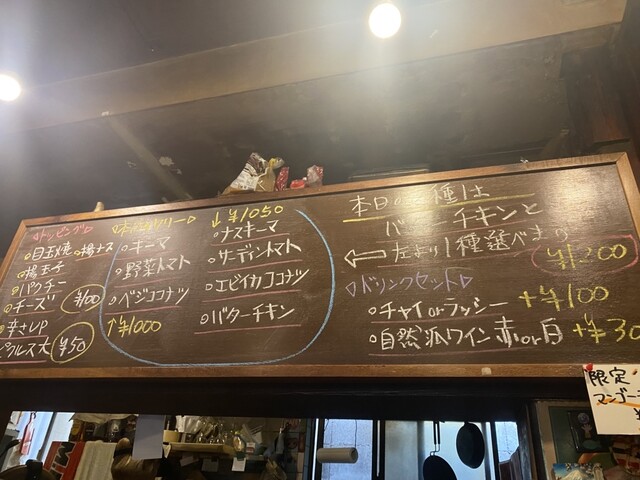 トッピング
○目玉焼 ○揚ナス
○揚玉子
○パクチー
○チーズ
¥100
○辛さUP
ピクルス大 ¥50
カレー
○キーマ
○野菜トマト
○ベジココナツ
↑¥1000
↓¥1050
○ナスキーマ
○サーディントマト
○エビイカココナツ
○バターチキン
本日の 種は
バターチキンと
左より1種選べます
¥1200
ドリンクセット
○チャイorラッシー +¥100
○自然派ワイン 赤or白 +¥30
限定
マンゴー
¥